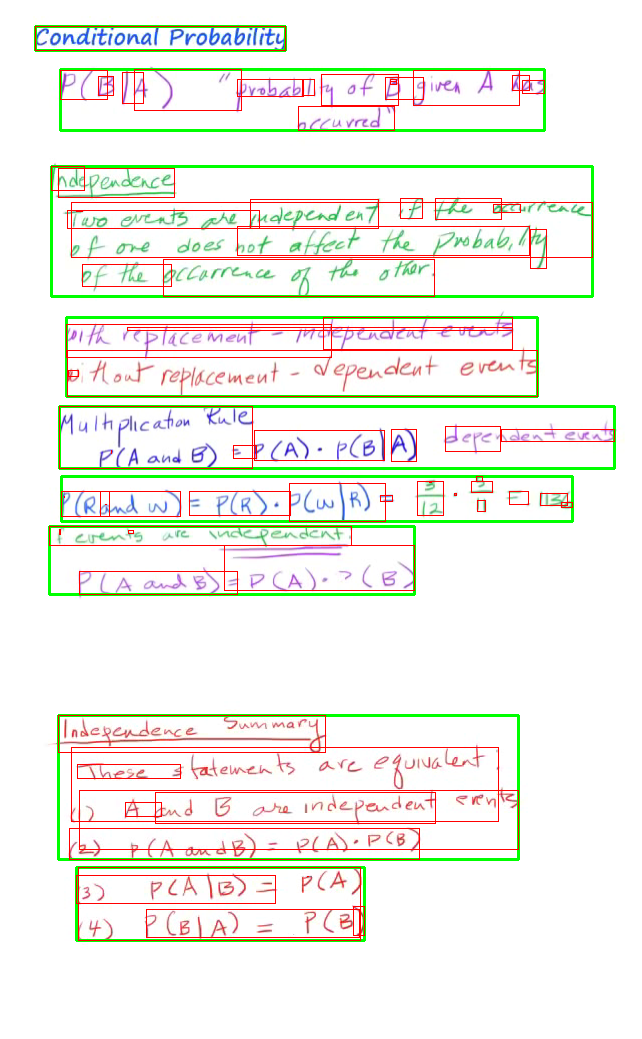 Conditional Probability
P(B|A) "probability of B given A has
occurred"
Independence
Two events are independent if the occurrence
of one does not affect the probability
of the occurrence of the other.
with replacement - independent events
without replacement - dependent events
Multiplication Rule
P(A and B) = P(A) · P(B|A) dependent events
P(R and W) = P(R) · P(W|R) = 3/12 · =
If events are independent.
P(A and B) = P(A) · P(B)
Independence Summary
These statements are equivalent.
(1) A and B are independent events
(2) P(A and B) = P(A) · P(B)
(3) P(A|B) = P(A)
(4) P(B|A) = P(B)